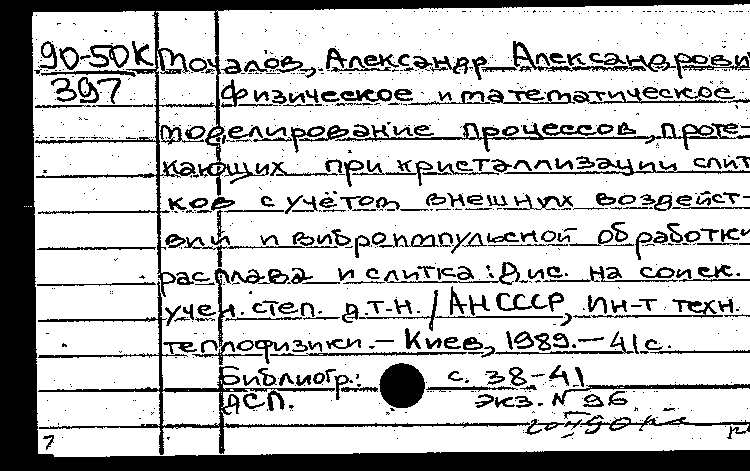 90-50К Мочалов, Александр Александрови
397 Физическое и математическое
моделирование процессов, проте-
кающих при кристаллизации слит
ков с учётом внешних воздейст-
вий и виброимпульсной обработки
расплава и слитка: Дис. на соиск.
учен. степ. д.т.н. / АН СССР, Ин-т техн.
теплофизики. — Киев, 1989. — 41 с.
Библиогр.: с. 38-41
ДСП. Экз. N 96
7